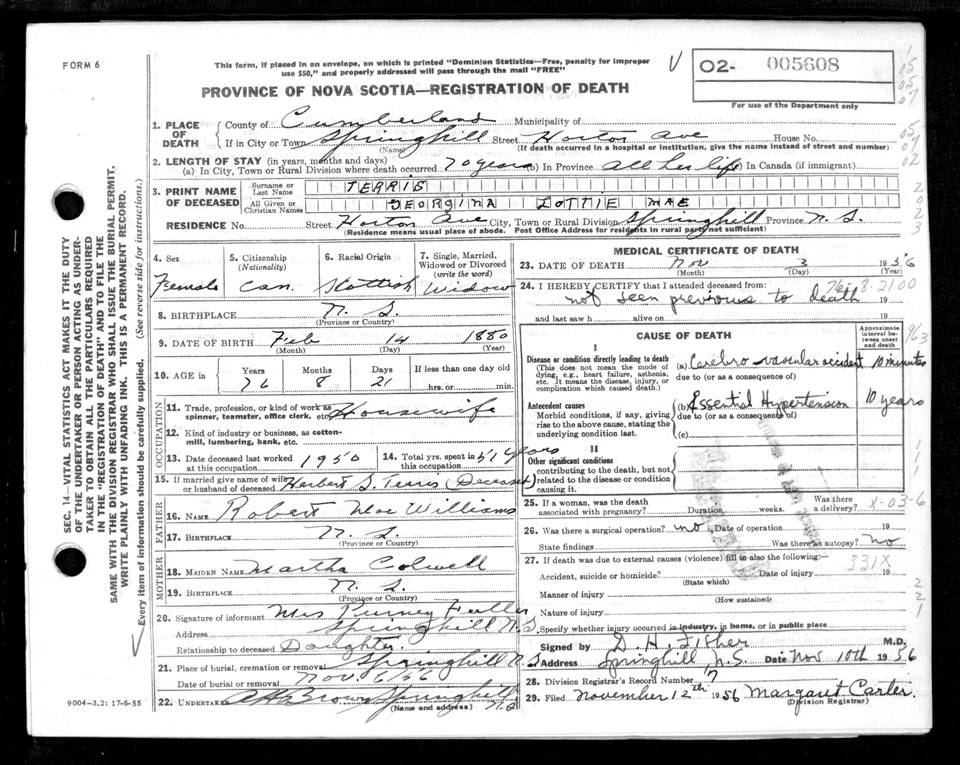 FORM 6
This form, if placed in an envelope, on which is printed "Dominion Statistics—Free, penalty for improper
use $50," and properly addressed will pass through the mail "FREE"
V
O2- 005608
For use of the Department only
PROVINCE OF NOVA SCOTIA—REGISTRATION OF DEATH
1. PLACE OF DEATH
County of Cumberland Municipality of
If in City or Town Springhill Street Horton Ave House No.
(Name) (If death occurred in a hospital or institution, give the name instead of street and number)
2. LENGTH OF STAY (in years, months and days)
(a) In City, Town or Rural Division where death occurred 70 years (b) In Province all her life In Canada (if immigrant)
3. PRINT NAME OF DECEASED
Surname or Last Name TERRIS
All Given or Christian Names GEORGINA LOTTIE MAE
RESIDENCE No. Street Horton Ave City, Town or Rural Division Springhill Province N.S.
(Residence means usual place of abode. Post Office Address for residents in rural parts not sufficient)
4. Sex
Female
5. Citizenship
(Nationality)
Can.
6. Racial Origin
Scottish
7. Single, Married,
Widowed or Divorced
(write the word)
Widow
8. BIRTHPLACE N.S.
(Province or Country)
9. DATE OF BIRTH Feb 14 1880
(Month) (Day) (Year)
10. AGE in Years Months Days If less than one day old
76 8 21 hrs. or min.
OCCUPATION
11. Trade, profession or kind of work as
spinner, teamster, office clerk, etc. Housewife
12. Kind of industry or business, as cotton-
mill, lumbering, bank, etc.
13. Date deceased last worked
at this occupation 1950
14. Total yrs. spent in
this occupation 51 years
15. If married give name of wife
or husband of deceased Herbert S. Terris (Deceased)
FATHER
16. NAME Robert Moe Williams
17. BIRTHPLACE N.S.
(Province or Country)
MOTHER
18. MAIDEN NAME Martha Colwell
19. BIRTHPLACE N.S.
(Province or Country)
20. Signature of informant Mrs Fuller
Address Springhill N.S.
Relationship to deceased Daughter.
21. Place of burial, cremation or removal Springhill N.S.
Date of burial or removal Nov. 6/56
22. UNDERTAKER Brown Springhill N.S
(Name and address)
MEDICAL CERTIFICATE OF DEATH
23. DATE OF DEATH Nov 3 1956
(Month) (Day) (Year)
24. I HEREBY CERTIFY that I attended deceased from:
not seen previous to death 19
and last saw h alive on 19
CAUSE OF DEATH
Approximate interval between onset and death
I
Disease or condition directly leading to death
(This does not mean the mode of
dying, e.g., heart failure, asthenia,
etc. It means the disease, injury, or
complication which caused death.)
(a) Cerebro-vascular accident 10 minutes
due to (or as a consequence of)
Antecedent causes
Morbid conditions, if any, giving
rise to the above cause, stating the
underlying condition last.
(b) Essential Hypertension 10 years
due to (or as a consequence of)
(c)
II
Other significant conditions
contributing to the death, but not
related to the disease or condition
causing it.
25. If a woman, was the death
associated with pregnancy? Duration weeks. Was there a delivery? X-03-6
26. Was there a surgical operation? no Date of operation 19
State findings Was there an autopsy? no
27. If death was due to external causes (violence) fill in also the following:
331X
Accident, suicide or homicide? Date of injury 19
(State which)
Manner of injury
(How sustained)
Nature of injury
Specify whether injury occurred in industry, in home, or in public place
Signed by D. H. Fisher M.D.
Address Springhill, N.S. Date Nov 10th 1956
28. Division Registrar's Record Number 7
29. Filed November 12th 1956 Margaret Carter.
(Division Registrar)
SEC. 14—VITAL STATISTICS ACT MAKES IT THE DUTY
OF THE UNDERTAKER OR PERSON ACTING AS UNDER-
TAKER TO OBTAIN ALL THE PARTICULARS REQUIRED
IN THE "REGISTRATION OF DEATH" AND TO FILE THE
SAME WITH THE DIVISION REGISTRAR WHO SHALL ISSUE THE BURIAL PERMIT.
WRITE PLAINLY WITH UNFADING INK. THIS IS A PERMANENT RECORD.
Every item of information should be carefully supplied. (See reverse side for instructions.)
9004—3.2: 17-6-55